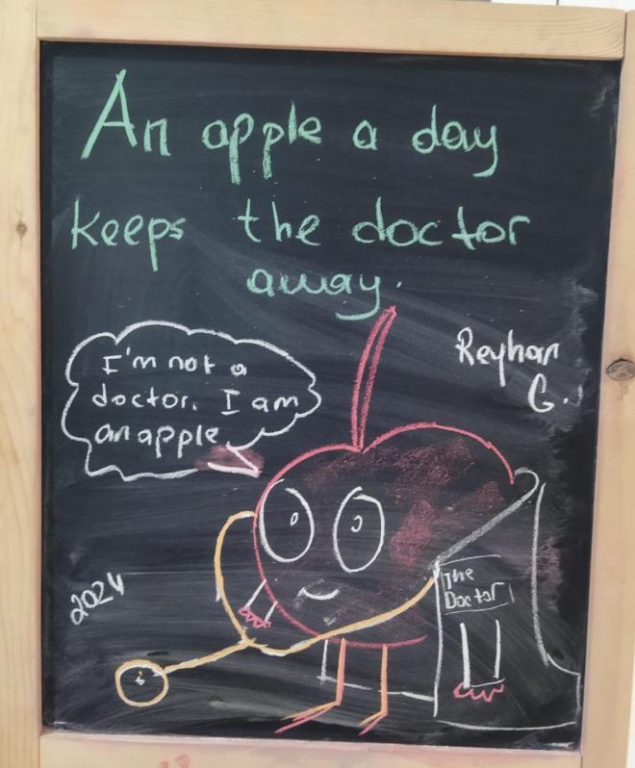 An apple a day
keeps the doctor
away.
Reyhan
G.
I'm not a
doctor. I am
an apple
2024
The
Doctor